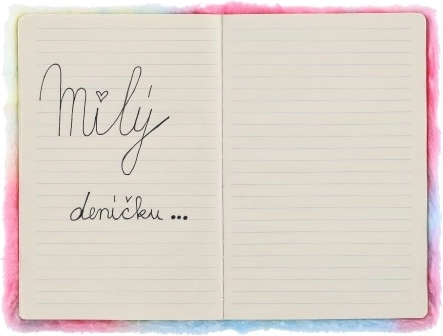 Milý
deníčku...